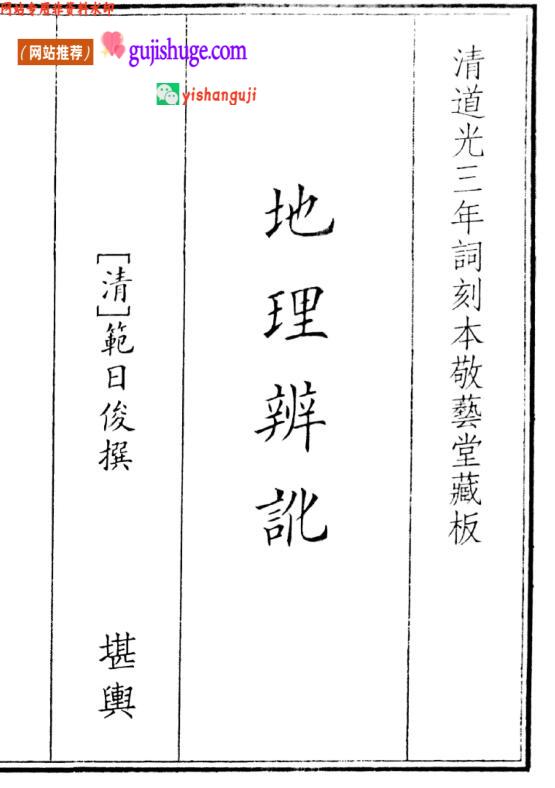 网站专属非资料水印
（网站推荐） gujishuge.com
yishanguji
清道光三年詞刻本敬藝堂藏板
地理辨訛
［清］範日俊撰
堪輿